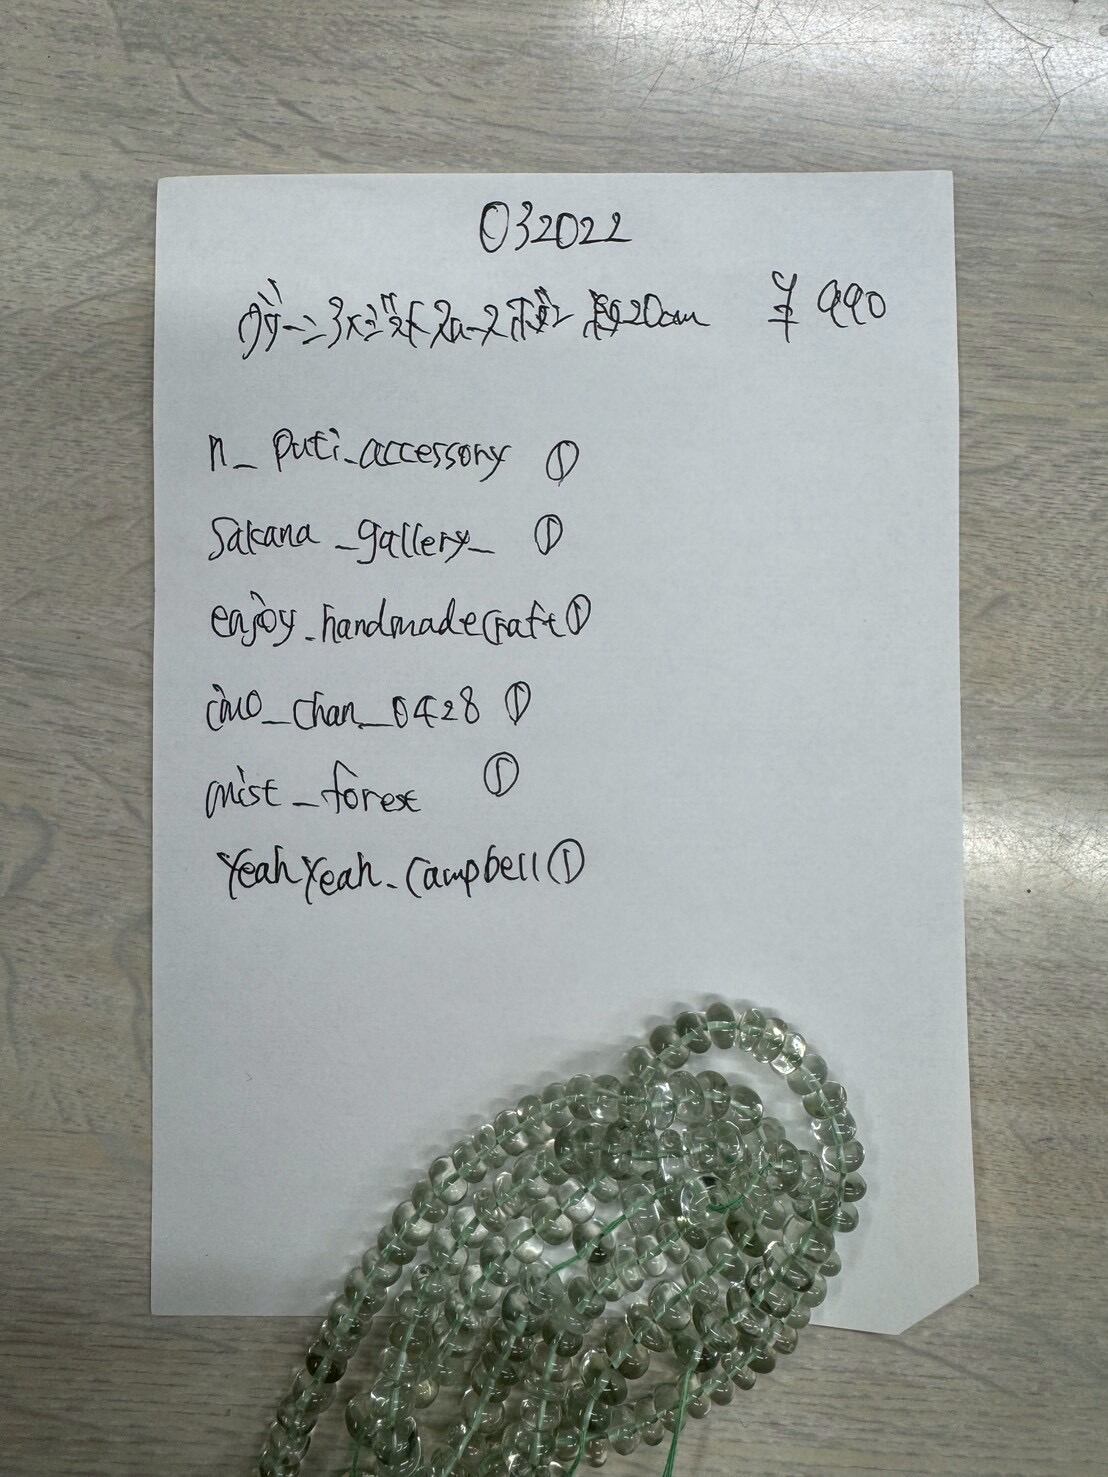 032022
グリーンアメジスト ロンデル 約20cm ¥990
n_puti_accessory ①
Sakana_gallery_ ①
enjoy_handmadecraft ①
chan_0428 ①
mist_forest ①
YeahYeah_Campbell ①